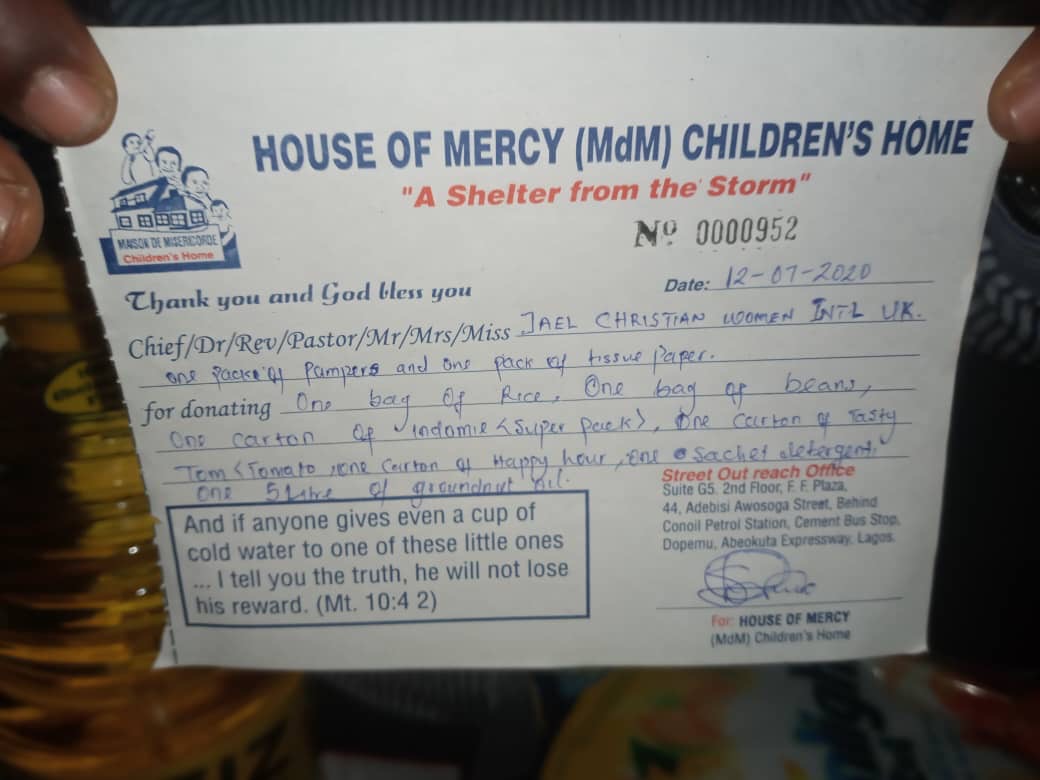 HOUSE OF MERCY (MdM) CHILDREN'S HOME
"A Shelter from the Storm"
MAISON DE MISERICORDE
Children's Home
Nº 0000952
Thank you and God bless you
Date: 12-07-2020
Chief/Dr/Rev/Pastor/Mr/Mrs/Miss JAEL CHRISTIAN WOMEN INTL UK.
one pack of Pampers and one pack of tissue paper.
for donating One bag Of Rice, One bag of beans,
One carton of indomie <Super pack>, One carton of Tasty
Tom <Tomato, one carton of Happy hour, one Sachet detergent.
One 5 Litre of groundnut oil.
Street Out reach Office
Suite G5. 2nd Floor, F. F. Plaza,
44, Adebisi Awosoga Street, Behind
Conoil Petrol Station, Cement Bus Stop,
Dopemu, Abeokuta Expressway, Lagos.
And if anyone gives even a cup of
cold water to one of these little ones
... I tell you the truth, he will not lose
his reward. (Mt. 10:4 2)
For: HOUSE OF MERCY
(MdM) Children's Home